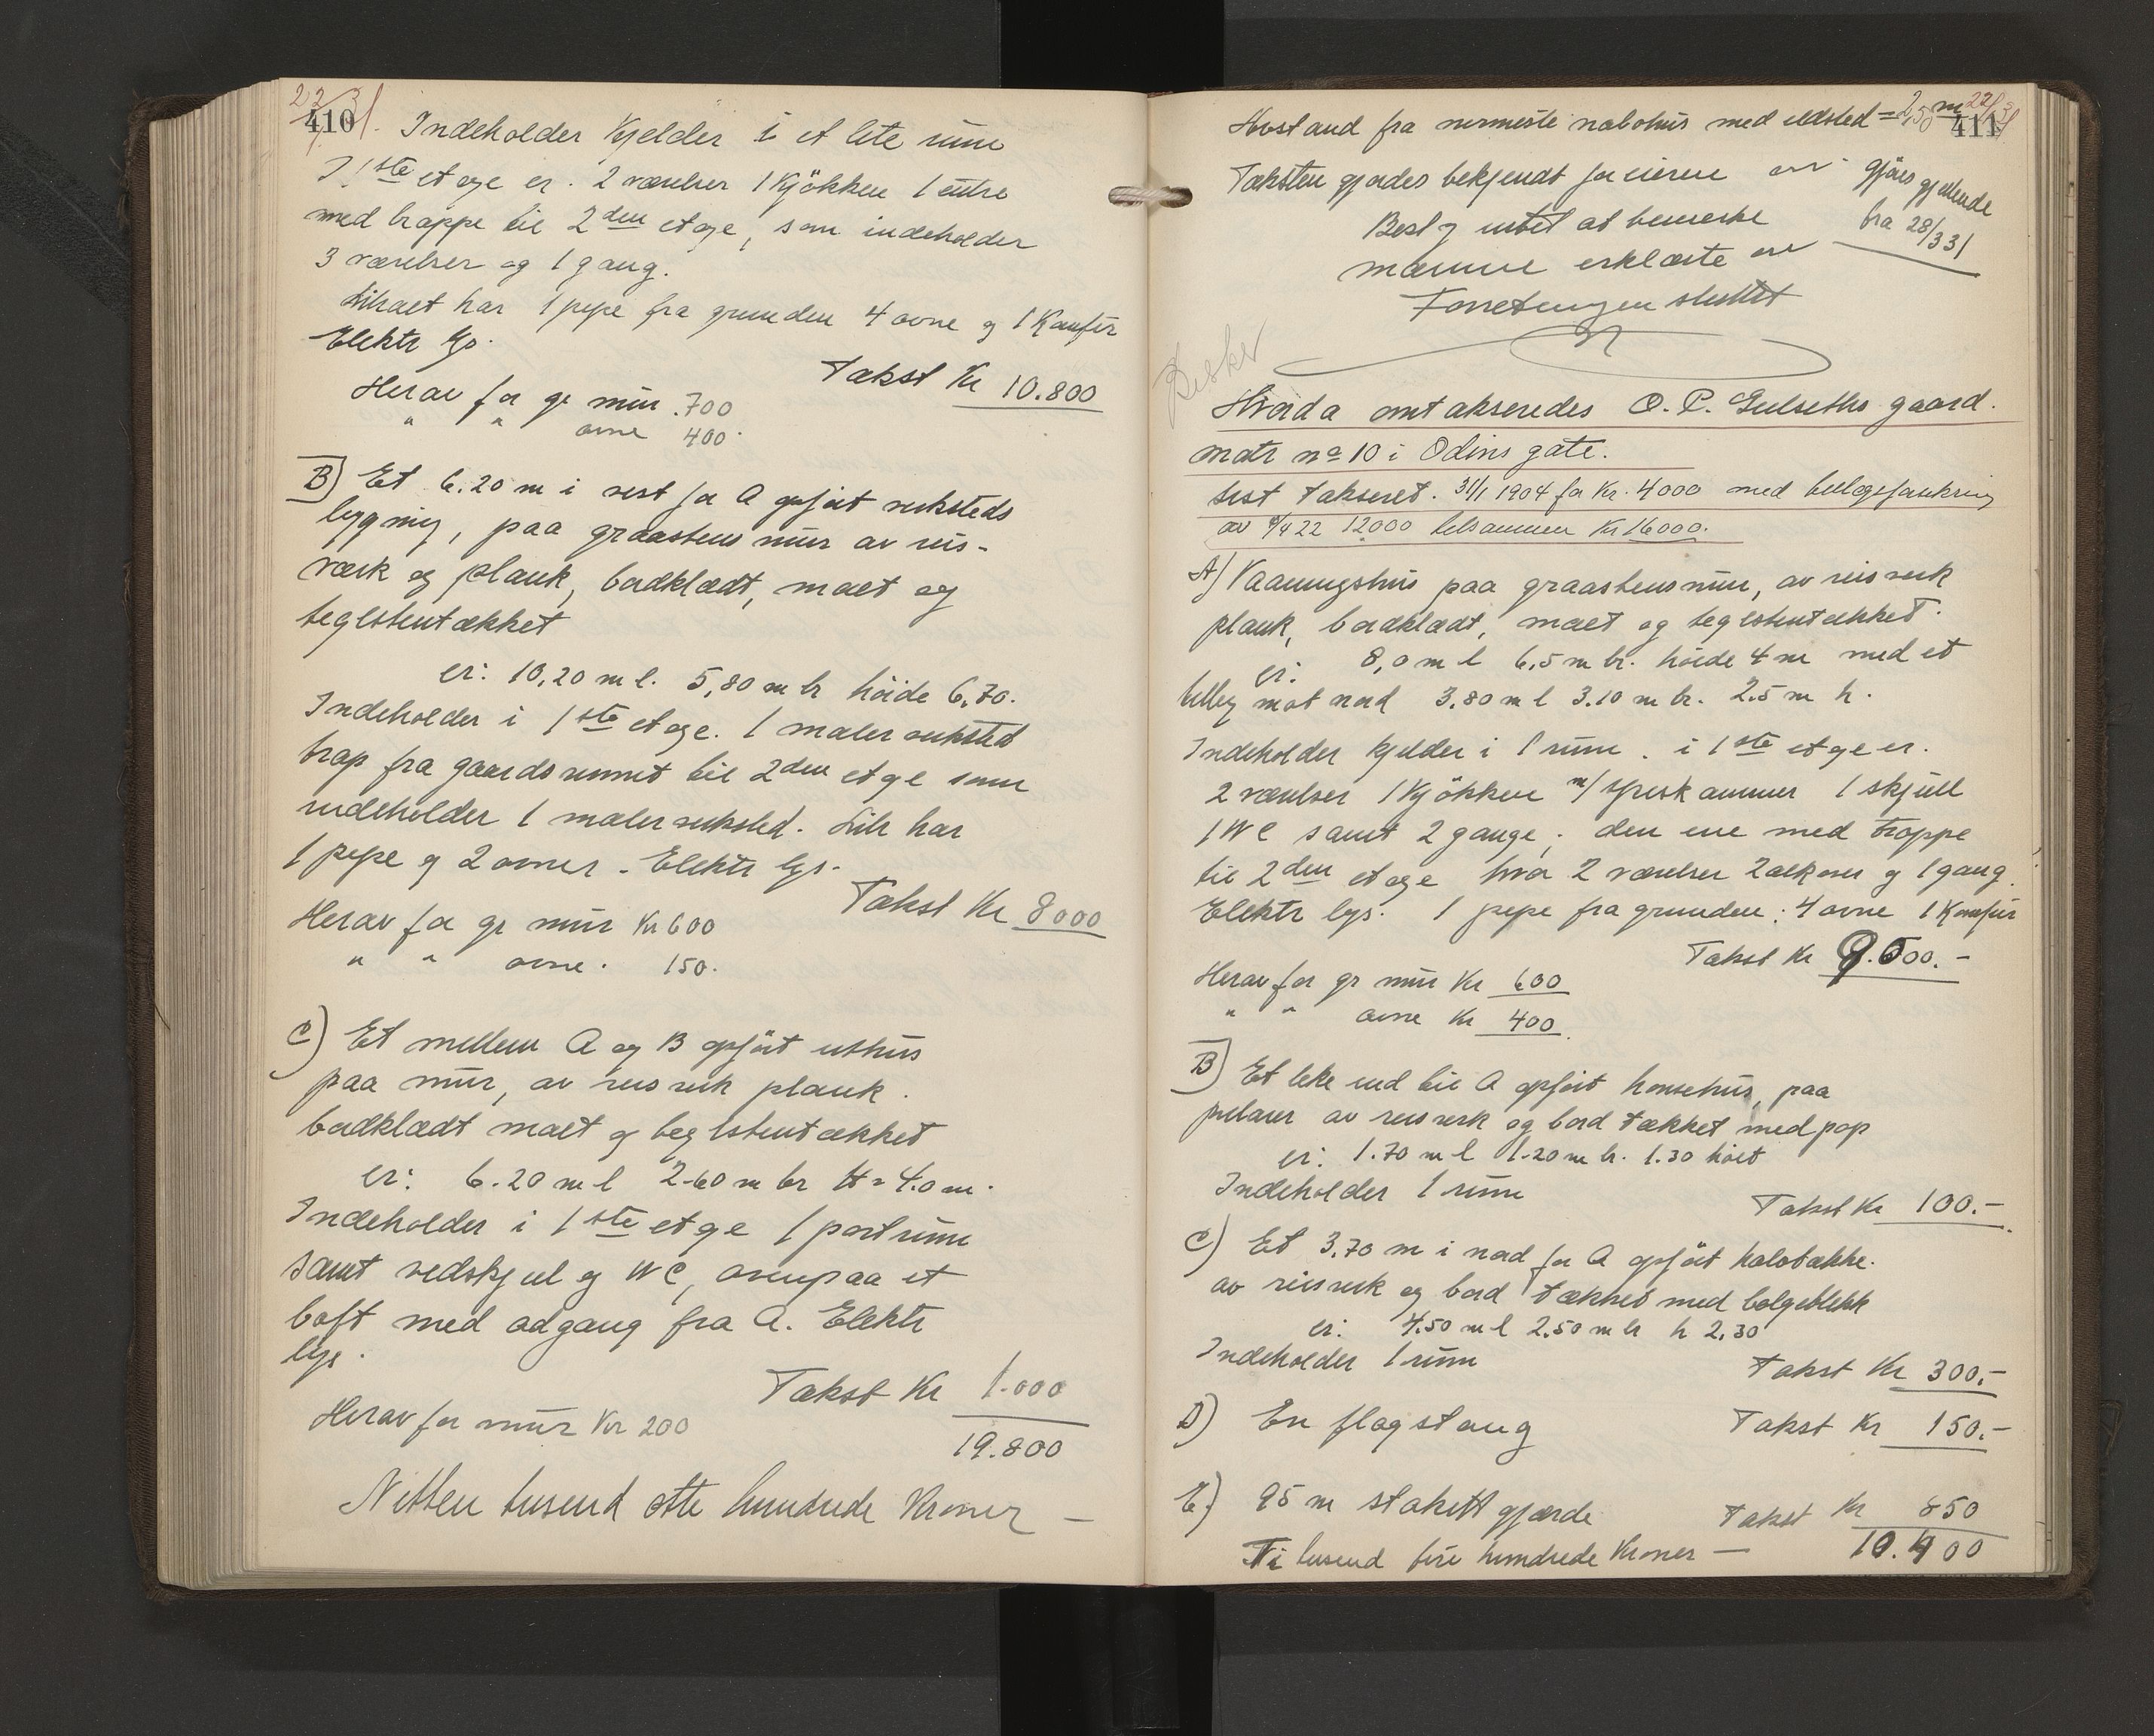 22/3 31.
410
Indeholder kjelder i et lite rum
I 1ste etage er. 2 værelser 1 kjökken 1 entre
med trappe til 2den etage, som indeholder
3 værelser og 1 gang.
Likaet har 1 pipe fra grunden 4 ovne og 1 Komfür
Elektr lys.
Takst Kr 10.800
Herav for gr mür .700
" " ovne 400.
B) Et 6.20 m i vest for A opfört verksteds
bygning, paa graastens mür av reis-
verk og plank, bordklædt, malt og
teglstentækket
er: 10,20 m l. 5,80 m br höide 6,70.
Indeholder i 1ste etage. 1 malerverksted
trap fra gaardsrumet til 2den etage som
indeholder 1 malerverksted. Lik har
1 pipe og 2 ovner - Elektr lys.
Takst Kr 8000
Herav for gr mür Kr 600
" " ovne. 150.
C) Et mellem A og B opfört uthus
paa mür, av reisverk plank.
bordklædt malt og teglstentækket
er: 6.20 m l 2.60 m br H = 4.0 m.
Indeholder i 1ste etage 1 portrüm
samt vedskjul og WC, ovenpaa et
loft med adgang fra A. Elektr
lys.
Takst Kr 1.000
Herav for mür Kr 200
19.800
Nitten tusend otte hundrede Kroner —
22/3 31
411
Avstand fra nermeste nabohus med ildsted = 2,50 m
Taksten gjordes bekjendt for eieren
gjöres gjeldende
fra 28/3 31
Best og intet at bemerke
mænnene erklærte
Forretningen sluttet
Hvorda omtakseredes O. P. Gulseths gaard.
matr no 10 i Odins gate.
sist takseret. 31/1 1904 for Kr. 4000 med tillægsforsikring
av 22 12000 tilsammen Kr 16000.
A) Vaaningshus paa graastensmür, av reisverk
plank, bordklædt, malt og teglstentækket.
er: 8,0 m l 6,5 m br. höide 4 m med et
tilbyg mot nord 3.80 m l 3.10 m br. 2.5 m h.
Indeholder kjelder i 1 rüm. i 1ste etage er.
2 værelser 1 kjökken m/ spiskammer 1 skjull
1 WC samt 2 gange; den ene med trappe
til 2den etage hvor 2 værelser 2 alkover og 1 gang.
Elektr lys. 1 pipe fra grunden: 4 ovne 1 Komfür
Takst Kr 9.000.-
Herav for gr mür Kr 600
" " ovne Kr 400
B) Et like ind til A opfört hönsehus, paa
pilarer av reisverk og bord tækket med pap
er: 1.70 m l 1.20 m br. 1.30 höit
Indeholder 1 rüm
Takst Kr 100.-
C) Et 3.70 m i nord for A opfört
av reisverk og bord tækket med bølgeblekk
er: 4.50 m l 2.50 m br h 2.30
Indeholder 1 rüm
Takst Kr 300.-
D) En flagstang Takst Kr 150.-
E) 95 m stakett gjærde Takst Kr 850
Ti tusend fire hundrede Kroner — 10.400